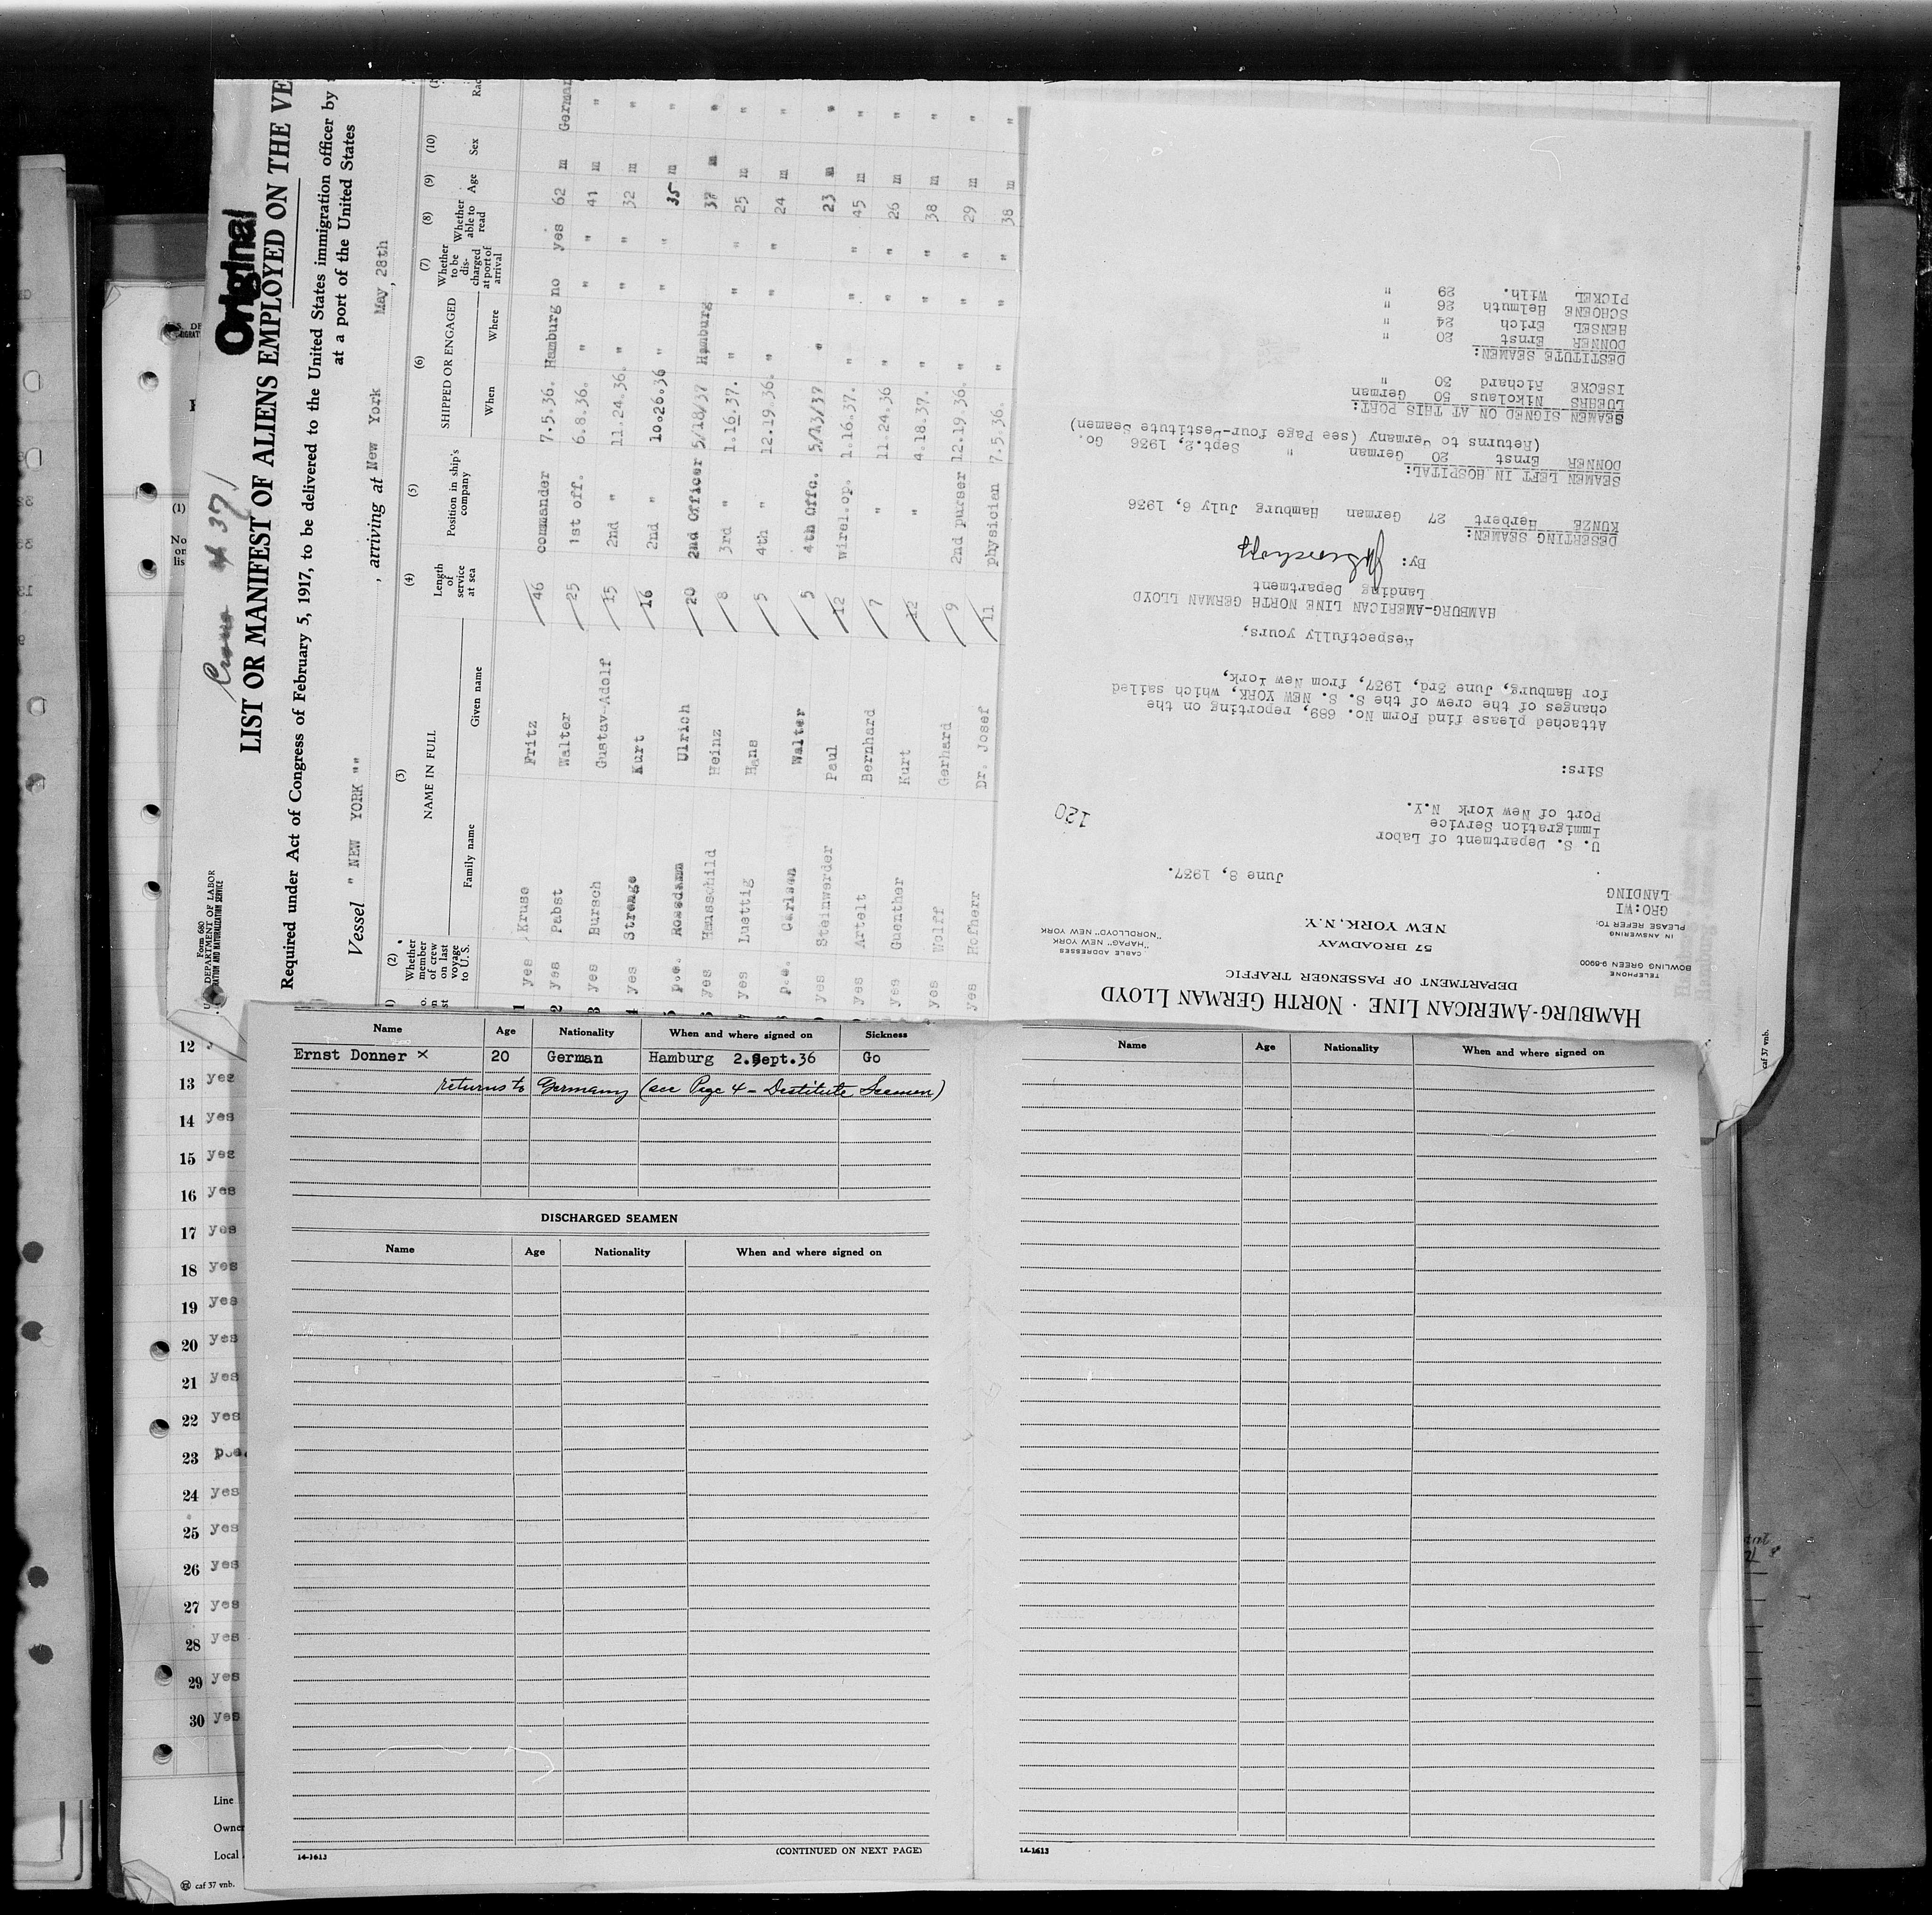 Original
Crew # 37/
LIST OR MANIFEST OF ALIENS EMPLOYED ON THE VE
Required under Act of Congress of February 5, 1917, to be delivered to the United States immigration officer by
at a port of the United States
Form 680
DEPARTMENT OF LABOR
IMMIGRATION AND NATURALIZATION SERVICE
Vessel " NEW YORK "" , arriving at New York May 28th,
(2) (3) (4) (5) (6) (7) (8) (9) (10)
Whether member of crew on last voyage to U.S.
NAME IN FULL
Family name Given name
Length of service at sea
Position in ship's company
SHIPPED OR ENGAGED
When Where
Whether to be discharged at port of arrival
Whether able to read
Age
Sex
1 yes Kruse Fritz 46 commander 7.5.36. Hamburg no yes 62 m German
2 yes Pabst Walter 25 1st off. 6.8.36. " " " 41 m "
3 yes Bursch Gustav-Adolf 15 2nd " 11.24.36. " " " 32 m "
4 yes Strenge Kurt 16 2nd " 10.26.36 " " " 35 m "
p.e. Rosedamm Ulrich 20 2nd Officer 5/18/37 Hamburg 37 m "
yes Hausschild Heinz 8 3rd " 1.16.37. " " " 25 m "
yes Luettig Hans 5 4th " 12.19.36. " " " 24 m "
p.e. Carlsen Walter 5 4th Offc. 5/13/37 " 23 m "
yes Steinwerder Paul 12 wirel.op. 1.16.37. " " " 45 m "
yes Artelt Bernhard 7 " 11.24.36 " " " 26 m "
yes Guenther Kurt 12 " 4.18.37. " " " 38 m "
yes Wolff Gerhard 9 2nd purser 12.19.36. " " " 29 m "
yes Hofherr Dr. Josef 11 physician 7.5.36. " " " 38 m "
HAMBURG-AMERICAN LINE · NORTH GERMAN LLOYD
DEPARTMENT OF PASSENGER TRAFFIC
57 BROADWAY
NEW YORK, N.Y.
TELEPHONE
BOWLING GREEN 9-6900
IN ANSWERING
PLEASE REFER TO:
GRO:WI
LANDING
CABLE ADDRESSES
"HAPAG" NEW YORK
"NORDLLOYD" NEW YORK
June 8, 1937.
U. S. Department of Labor
Immigration Service
Port of New York N.Y.
120
Sirs:
Attached please find Form No. 689, reporting on the
changes of the crew of the S. S. NEW YORK, which sailed
for Hamburg, June 3rd, 1937, from New York,
Respectfully yours,
HAMBURG-AMERICAN LINE NORTH GERMAN LLOYD
Landing Department
By:
DESERTING SEAMEN:
KUNZE Herbert 27 German Hamburg July 6, 1936
SEAMEN LEFT IN HOSPITAL:
DONNER Ernst 20 German " Sept.2, 1936 Go.
(Returns to Germany (see Page four-Destitute Seamen)
SEAMEN SIGNED ON AT THIS PORT:
LUEHRS Nikolaus 50 German
ISECKE Richard 30 "
DESTITUTE SEAMEN:
DONNER Ernst 20 "
HENSEL Erich 24 "
SCHOENE Helmuth 26 "
PICKEL Wilh. 29 "
caf 37 vnb.
Name Age Nationality When and where signed on Sickness
Ernst Donner × 20 German Hamburg 2.Sept.36 Go
returns to Germany (see Page 4 - Destitute Seamen)
DISCHARGED SEAMEN
Name Age Nationality When and where signed on
(CONTINUED ON NEXT PAGE)
14-1613
Name Age Nationality When and where signed on
14-1613
(1)
No
on
lis
12
13 yes
14 yes
15 yes
16 yes
17 yes
18 yes
19 yes
20 yes
21 yes
22 yes
23 p.e.
24 yes
25 yes
26 yes
27 yes
28 yes
29 yes
30 yes
Line
Owner
Local
caf 37 vnb.